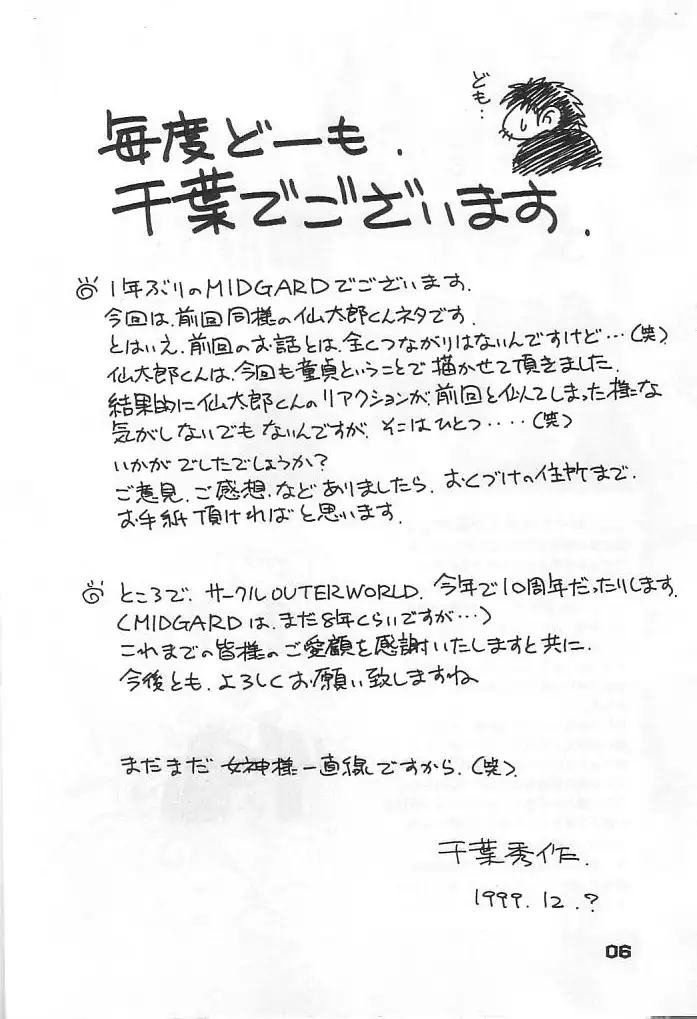 ども・・
毎度どーも.
千葉でございます.
1年ぶりのMIDGARDでございます.
今回は、前回同様の仙太郎くんネタです.
とはいえ、前回のお話とは、全くつながりはないんですけど…(笑)
仙太郎くんは、今回も童貞ということで描かせて頂きました.
結果的に仙太郎くんのリアクションが、前回と似てしまった様な
気がしないでもないんですが、そこはひとつ・・・・(笑)
いかがでしたでしょうか?
ご意見、ご感想、などありましたら、おくづけの住所まで、
お手紙頂ければと思います.
ところで、サークルOUTERWORLD、今年で10周年だったりします.
(MIDGARDは、まだ8年くらいですが…)
これまでの皆様のご愛顧を感謝いたしますと共に、
今後とも、よろしくお願い致しますね
まだまだ女神様一直線ですから、(笑).
千葉秀作.
1999.12.?
06